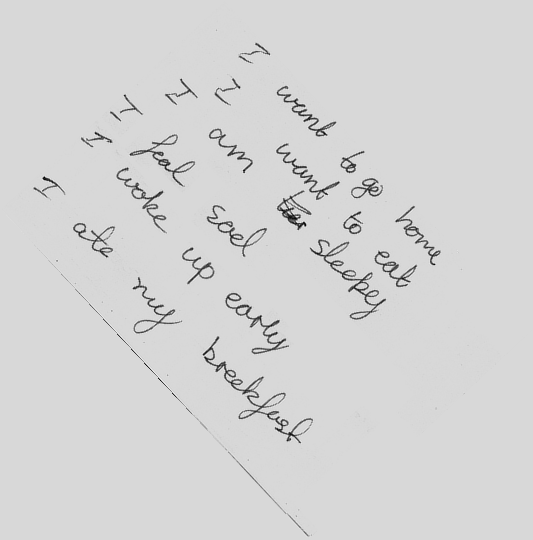 I want to go home
I want to eat
I am sleepy
I feal sad
I woke up early
I ate my breekfast